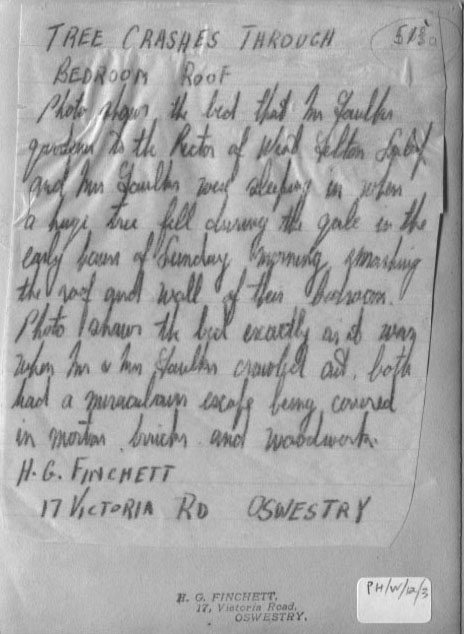 TREE CRASHES THROUGH
BEDROOM ROOF
Photo shows the bed that Mr Faulks
gardener to the Rector of West Felton Salop
and Mrs Faulks were sleeping in when
a huge tree fell during the gale in the
early hours of Sunday morning smashing
the roof and wall of their bedroom.
Photo shows the bed exactly as it was
when Mr & Mrs Faulks crawled out. both
had a miraculous escape being covered
in mortar bricks and woodwork.
H. G. FINCHETT
17 VICTORIA RD OSWESTRY
H. G. FINCHETT,
17, Victoria Road,
OSWESTRY.
PH/W/12/3